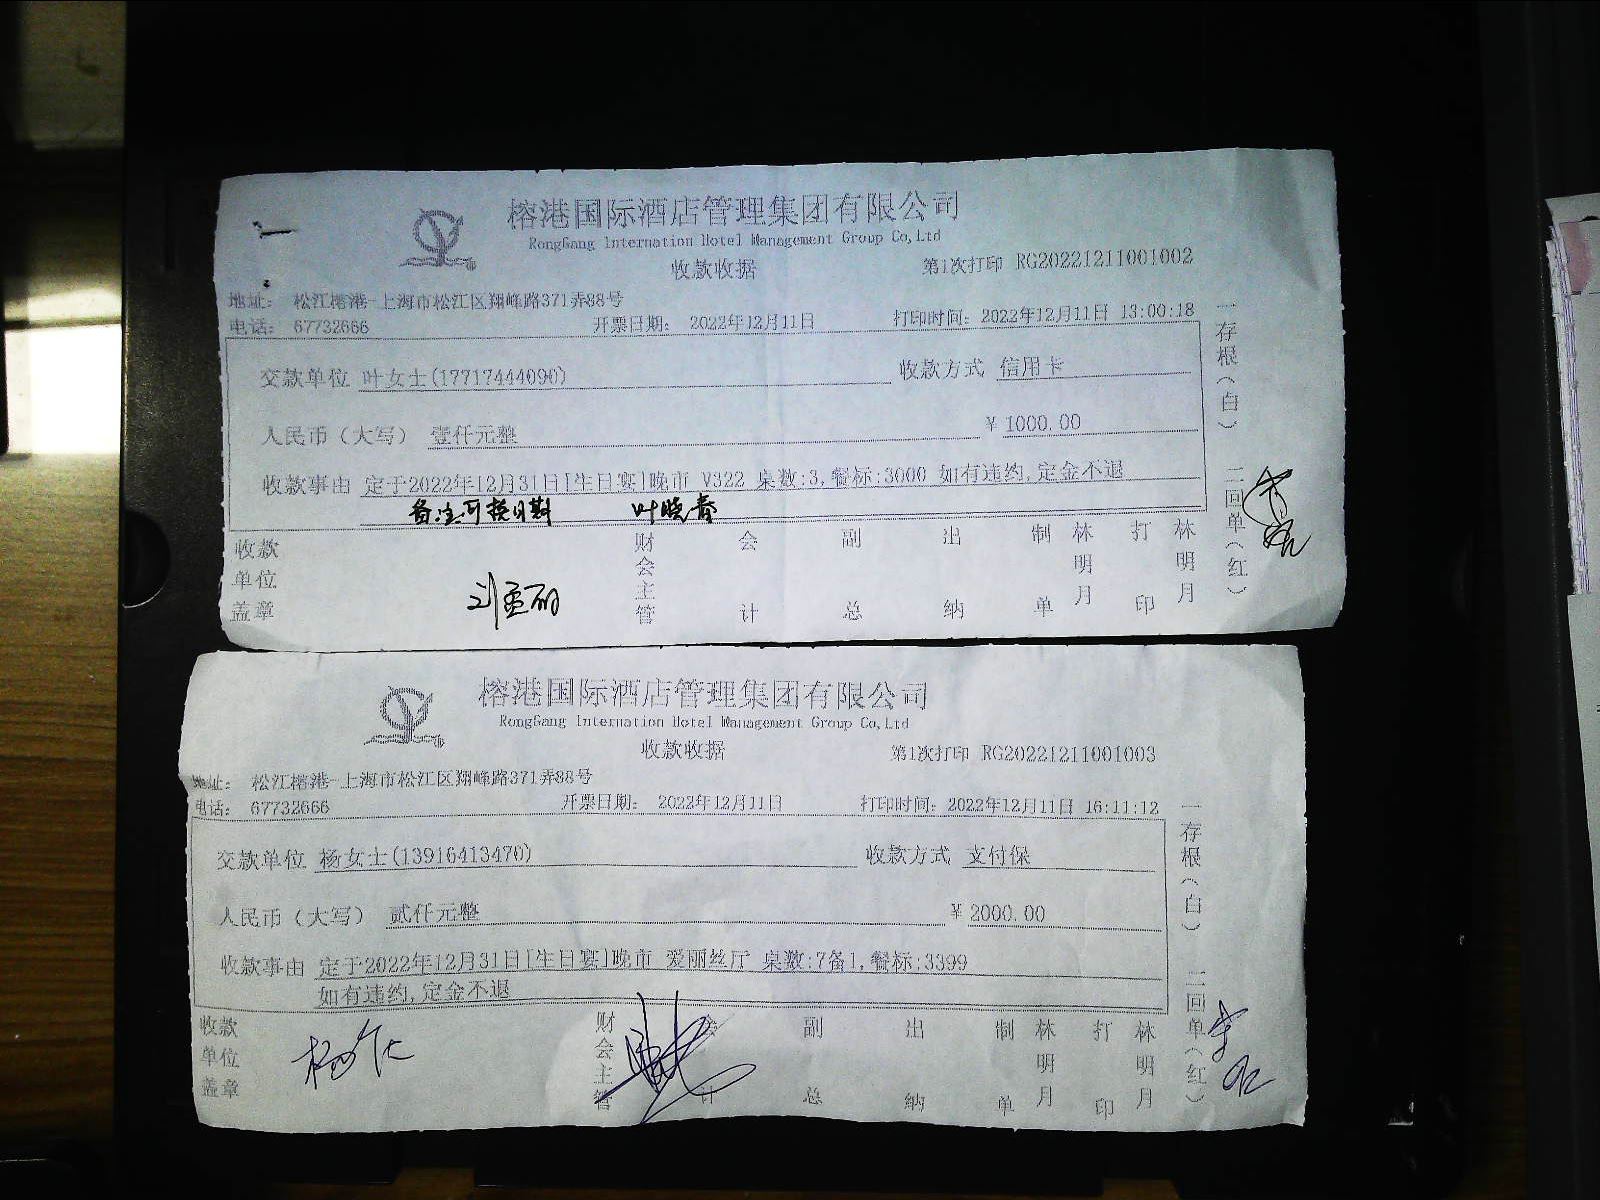 榕港国际酒店管理集团有限公司
RongGang Internation Hotel Management Group Co,Ltd
收款收据
第1次打印 RG20221211001002
地址： 松江榕港-上海市松江区翔峰路371弄88号
电话： 67732666
开票日期： 2022年12月11日
打印时间：2022年12月11日 13:00:18
交款单位 叶女士(17717444090)
收款方式 信用卡
人民币（大写） 壹仟元整
¥ 1000.00
收款事由 定于2022年12月31日[生日宴]晚市 V322 桌数:3,餐标:3000 如有违约,定金不退
备注可换日期 叶晓青
收款单位盖章
财会主管
会计
副总
出纳
制单 林明月
打印 林明月
一存根（白） 二回单（红）
榕港国际酒店管理集团有限公司
RongGang Internation Hotel Management Group Co,Ltd
收款收据
第1次打印 RG20221211001003
地址： 松江榕港-上海市松江区翔峰路371弄88号
电话： 67732666
开票日期： 2022年12月11日
打印时间：2022年12月11日 16:11:12
交款单位 杨女士(13916413470)
收款方式 支付保
人民币（大写） 贰仟元整
¥ 2000.00
收款事由 定于2022年12月31日[生日宴]晚市 爱丽丝厅 桌数:7备1,餐标:3399
如有违约,定金不退
收款单位盖章
财会主管
会计
副总
出纳
制单 林明月
打印 林明月
一存根（白） 二回单（红）